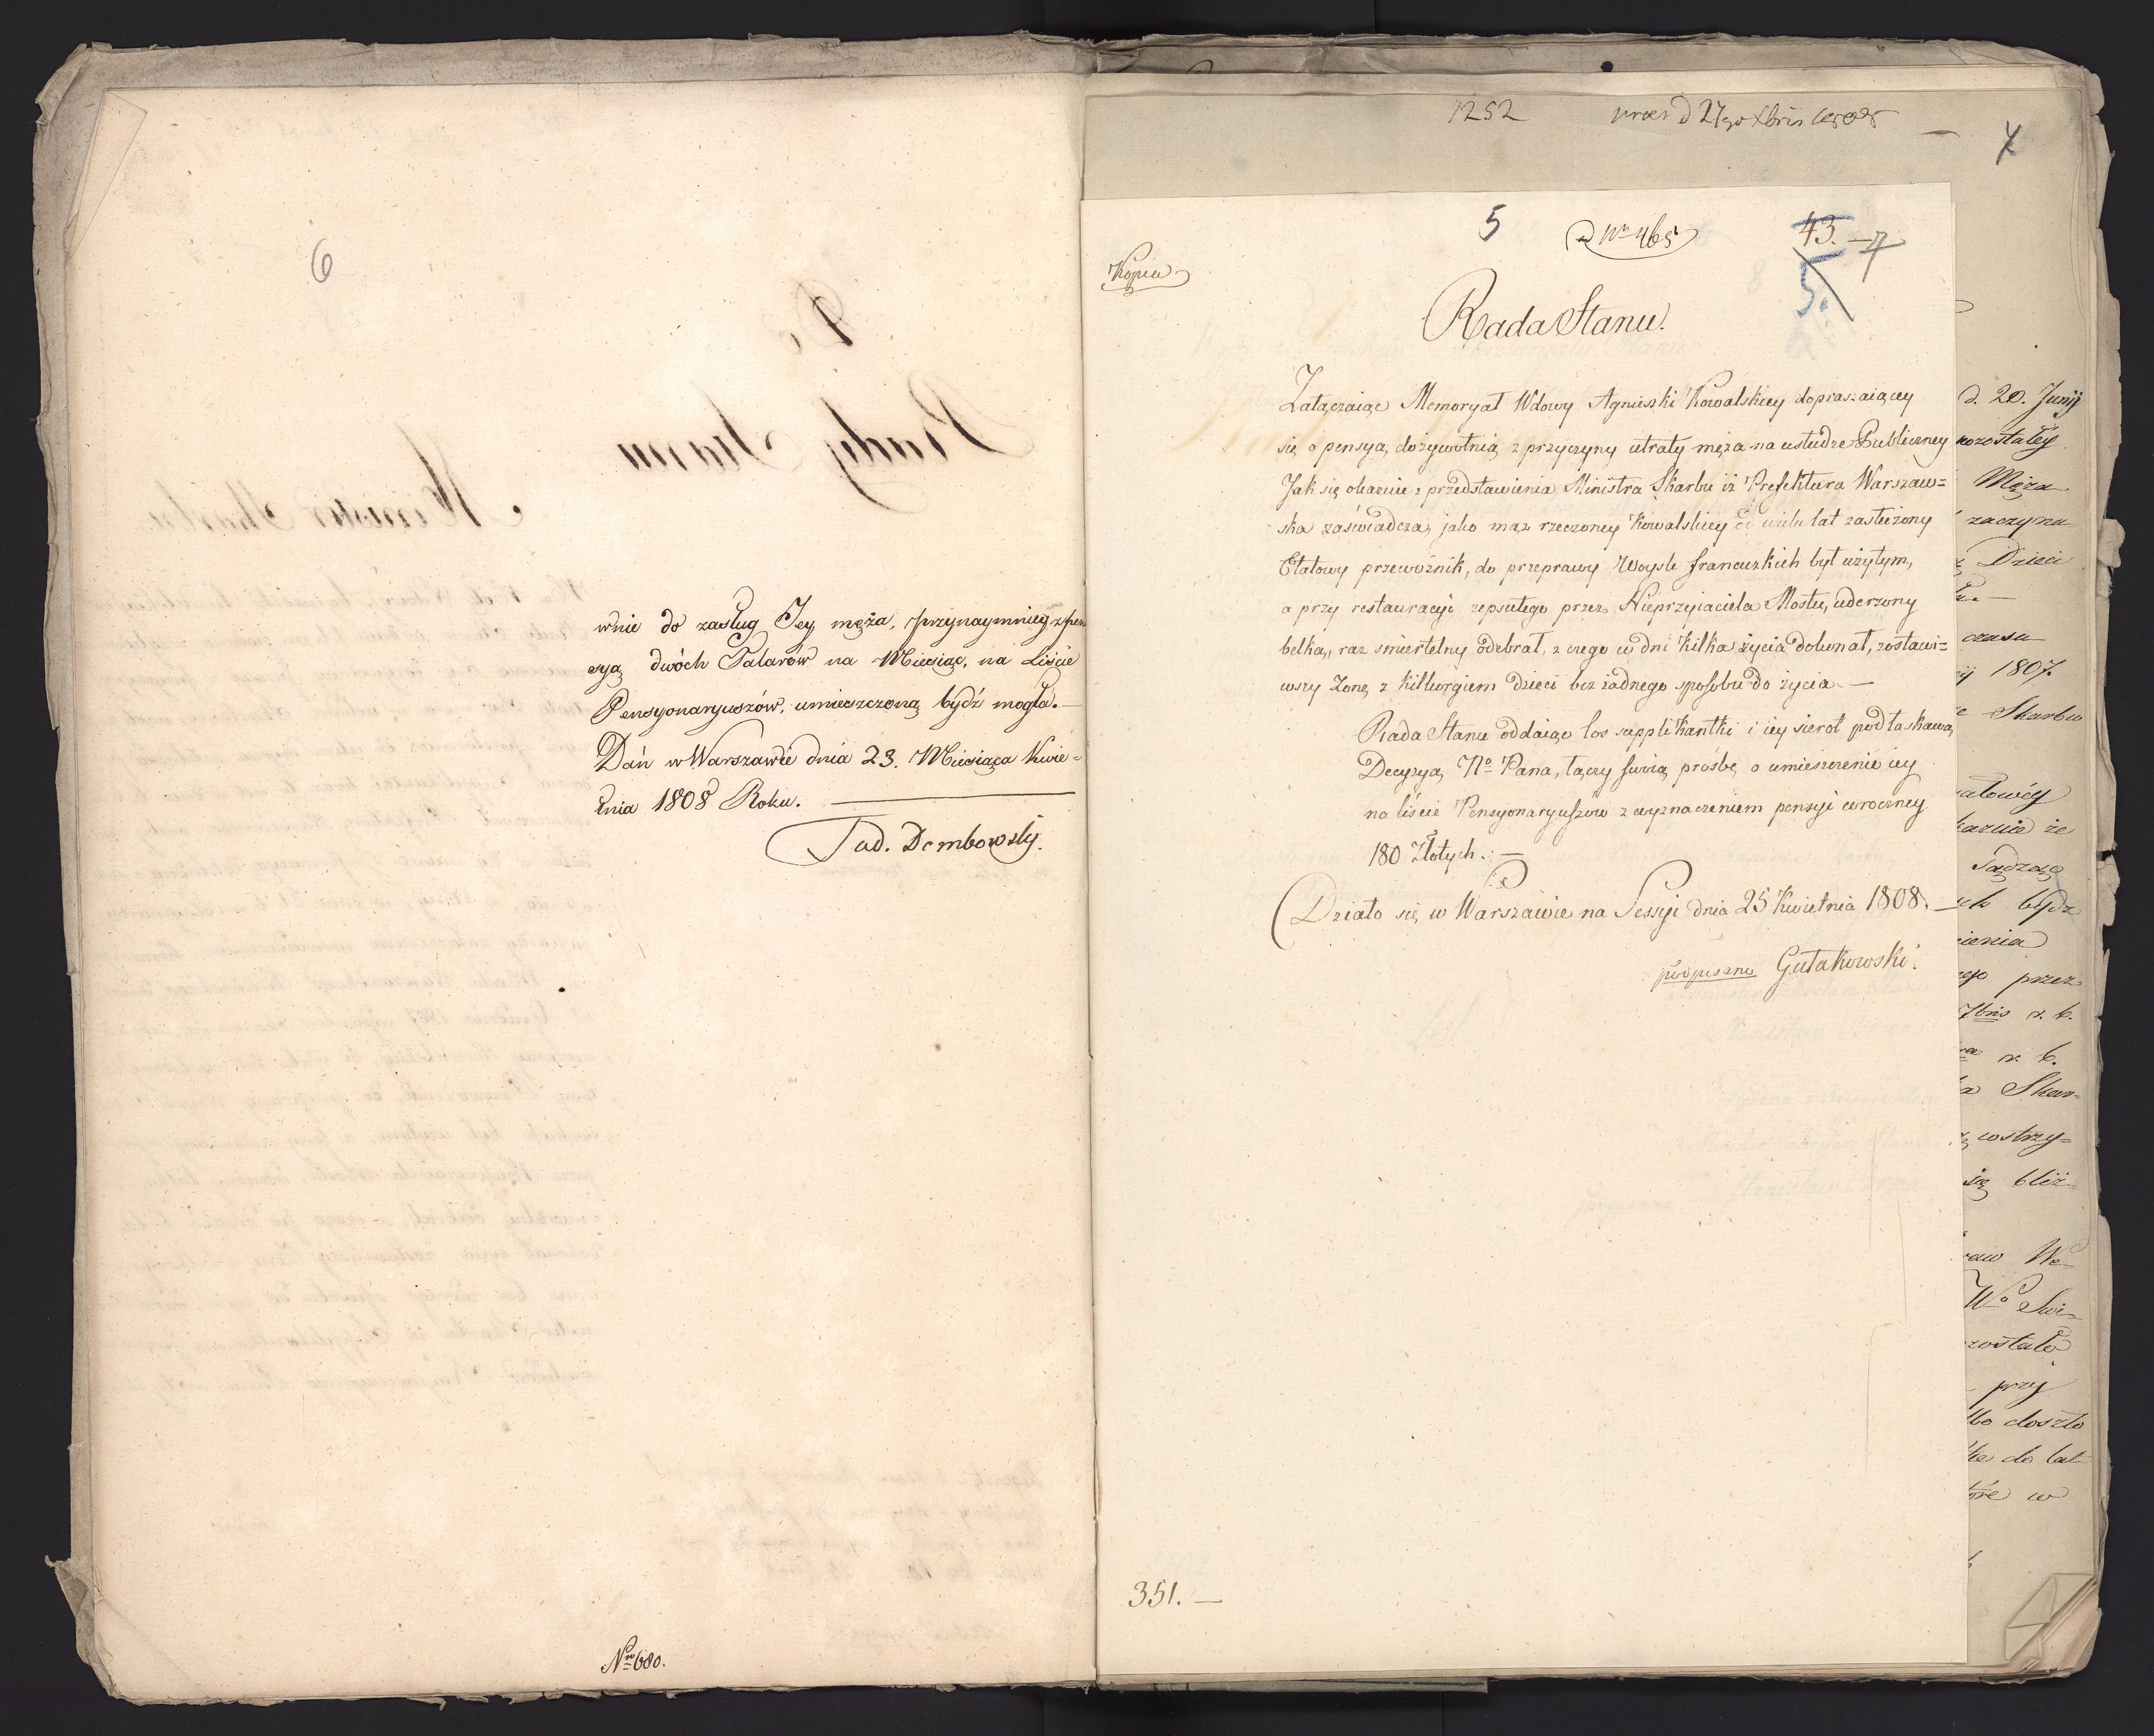 6
wnie do zasług Jey męża, przynaymniey z pen
syą dwóch Talarów na Miesiąc, na Liście
Pensyonaryuszów, umieszczoną bydź mogła.—
Dań w Warszawie dnia 23. Miesiąca Kwie=
tnia 1808 Roku.
Tad. Dembowsky.
Nro 680.
1252
4
5
ad Nro 465
43.—
7
5.
Kopia
Rada Stanu.
Załączaiąc Memoryał Wdowy Agnieszki Kowalskiey dopraszaiącey
się o pensyą dożywotnią z przyczyny utraty męża na usłudze Publiczney
Jak się okazuie z przedstawienia Ministra Skarbu iż Prefektura Warszaw=
ska zaświadcza, jako mąż rzeczoney Kowalskiey od wielu lat zasłużony
Etatowy przewoźnik, do przeprawy Woysk francuzkich był użytym,
a przy restauracyi zepsutego przez Nieprzyiaciela Mostu, uderzony
belką, raz smiertelny odebrał, z czego w dni kilka życia dokonał, zostawi=
wszy Zonę z kilkorgiem dzieci bez żadnego sposobu do życia.—
Rada Stanu oddaiąc los supplikantki i iey sierot pod łaskawą
Decyzyą No Pana, łączy swoią prośbę o umieszczenie iey
na liście Pensyonaryuszów z wyznaczeniem pensyi coroczney
180 Złotych.—
Działo się w Warszawie na Sessyi dnia 25 Kwietnia 1808.—
podpisano Gutakowski.
351.—
d. 20. Junij
pozostałey
Męża
zaczyna
Dzieci
czasu
1807.
Skarbu
że
Sądząc
bydz
przez
7bris r. b.
r. b.
Skar=
wstrzy=
się bliż
We
Wo Swi=
zostało
przy
doszło
do lat
w